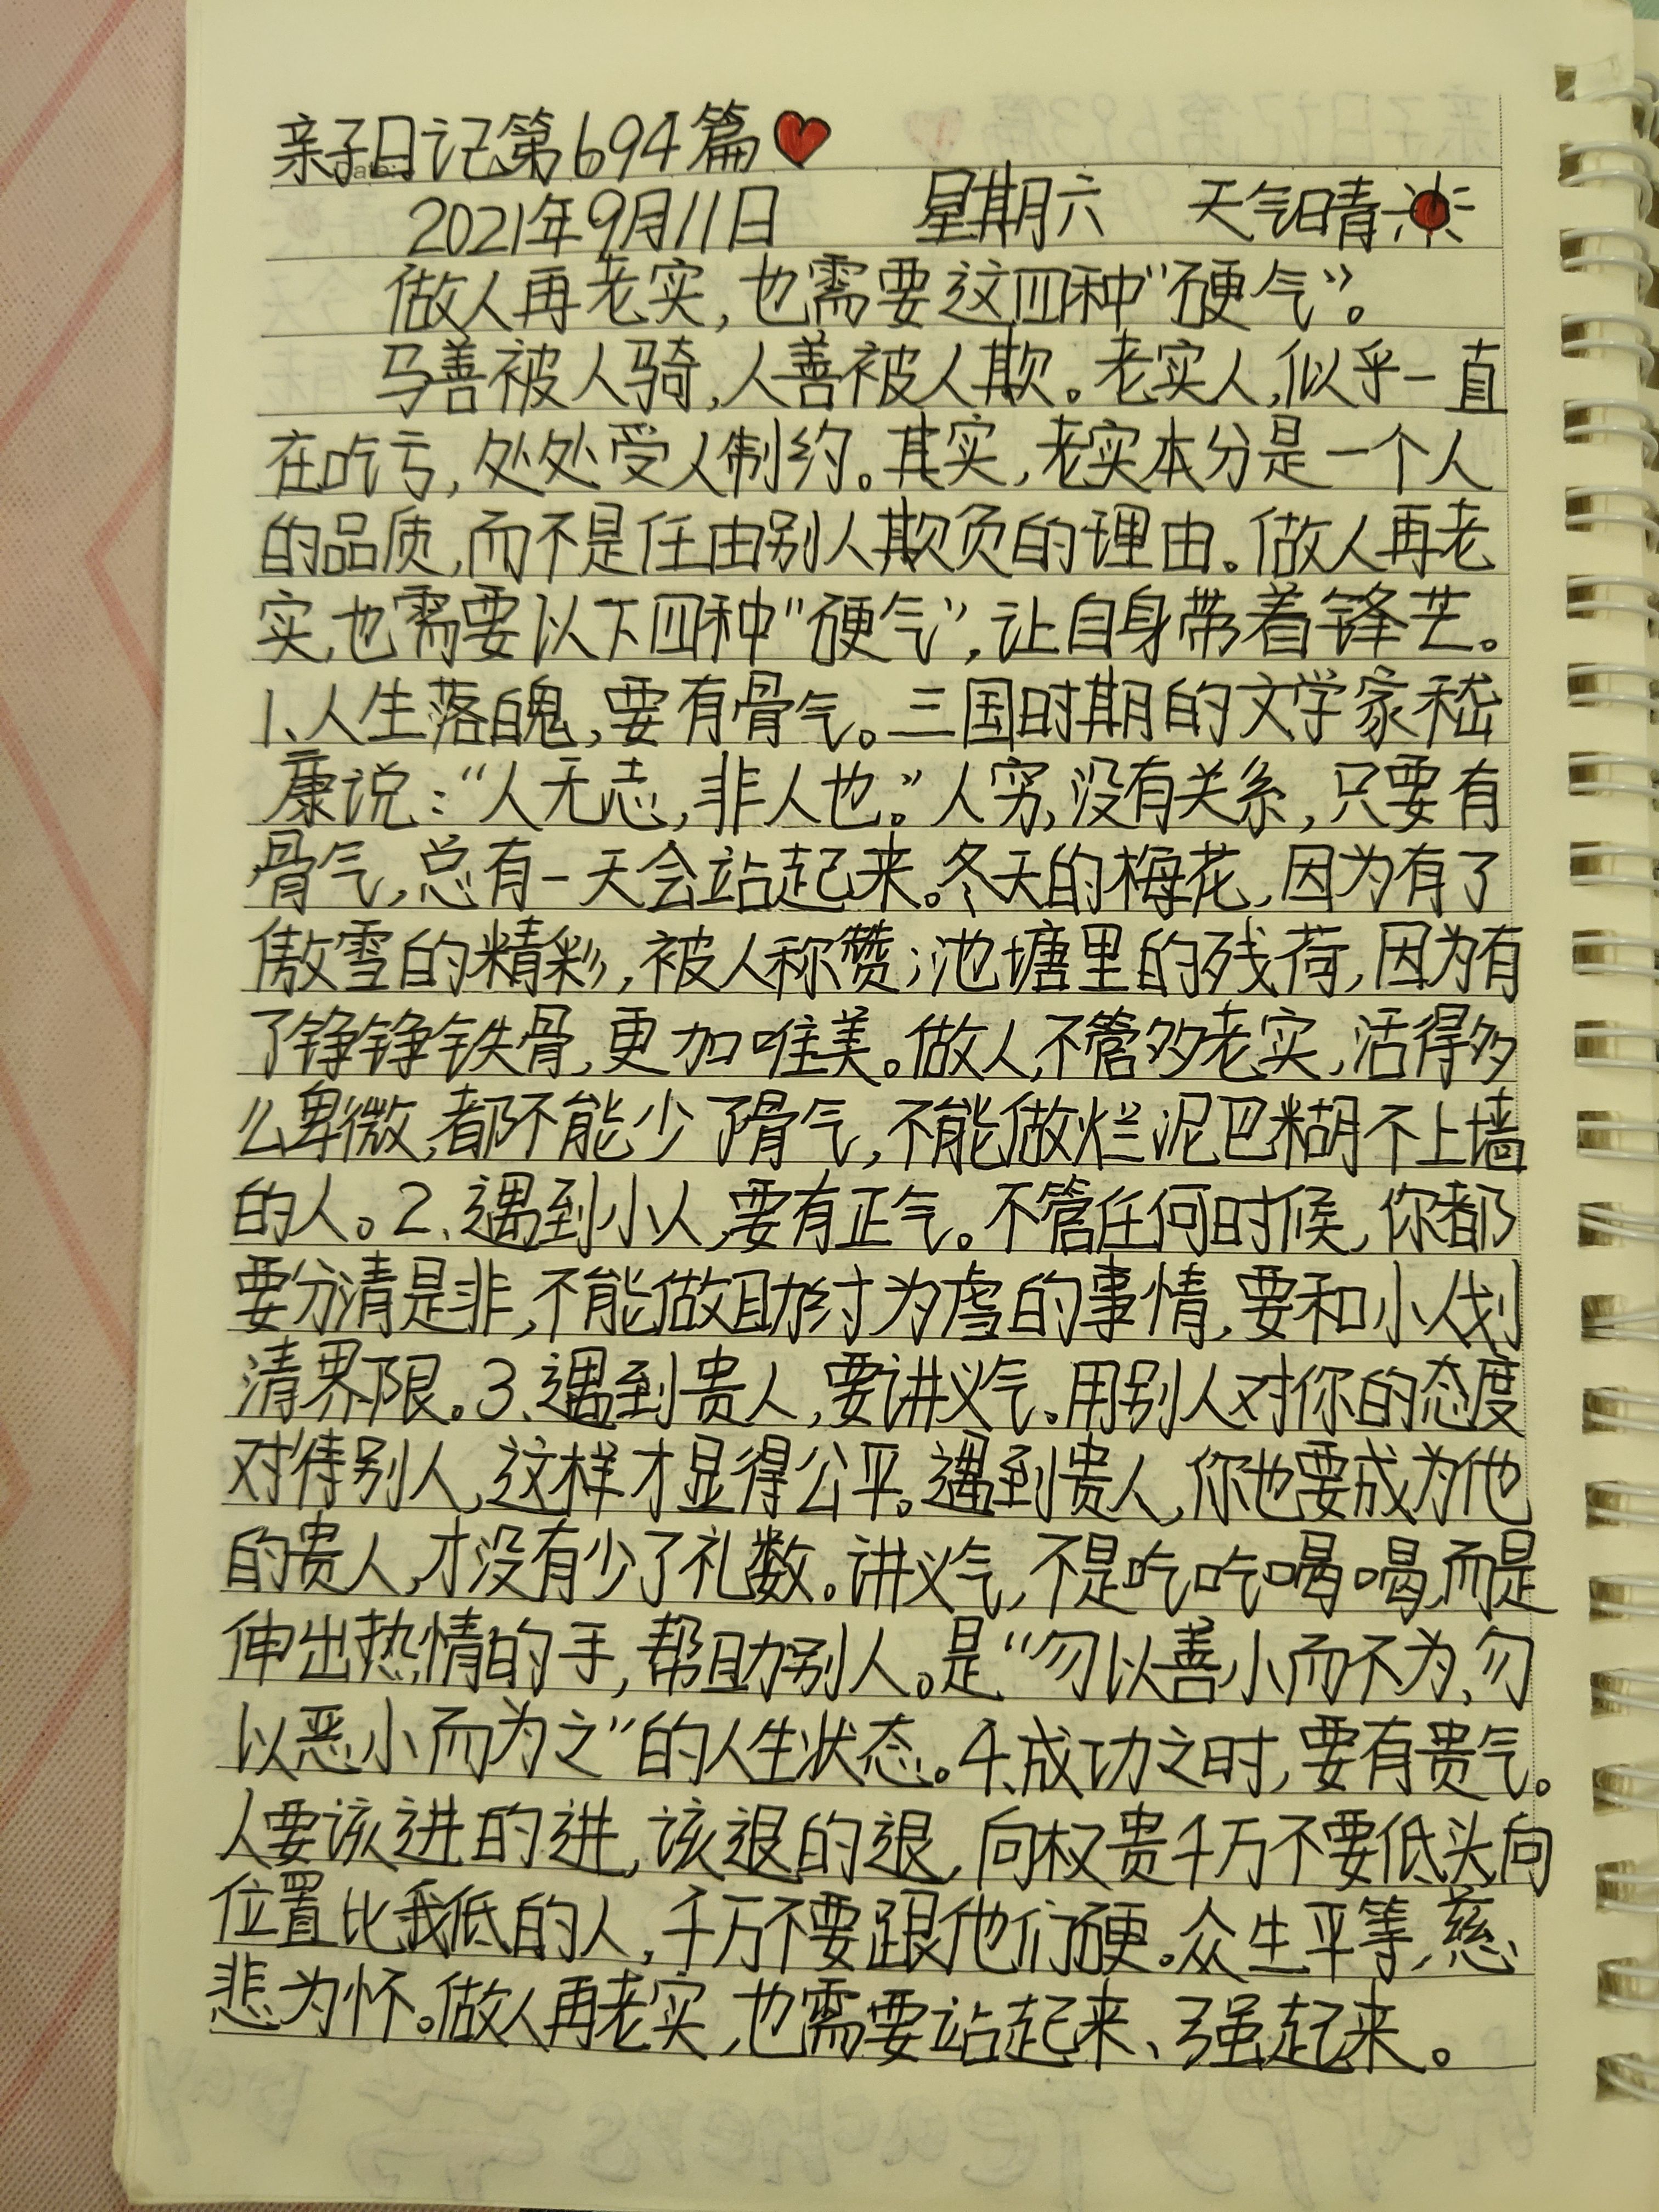 亲子日记第694篇
2021年9月11日 星期六 天气晴
做人再老实,也需要这四种"硬气"。
马善被人骑,人善被人欺。老实人,似乎一直
在吃亏,处处受人制约。其实,老实本分是一个人
的品质,而不是任由别人欺负的理由。做人再老
实,也需要以下四种"硬气",让自身带着锋芒。
1、人生落魄,要有骨气。三国时期的文学家嵇
康说:"人无志,非人也。"人穷,没有关系,只要有
骨气,总有一天会站起来。冬天的梅花,因为有了
傲雪的精彩,被人称赞;池塘里的残荷,因为有
了铮铮铁骨,更加唯美。做人,不管多老实,活得多
么卑微,都不能少了骨气,不能做烂泥巴糊不上墙
的人。2、遇到小人,要有正气。不管任何时候,你都
要分清是非,不能做助纣为虐的事情,要和小人划
清界限。3、遇到贵人,要讲义气。用别人对你的态度
对待别人,这样才显得公平。遇到贵人,你也要成为他
的贵人,才没有少了礼数。讲义气,不是吃吃喝喝,而是
伸出热情的手,帮助别人。是"勿以善小而不为,勿
以恶小而为之"的人生状态。4、成功之时,要有贵气。
人要该进的进,该退的退,向权贵千万不要低头,向
位置比我低的人,千万不要跟他们硬。众生平等,慈
悲为怀。做人再老实,也需要站起来、强起来。